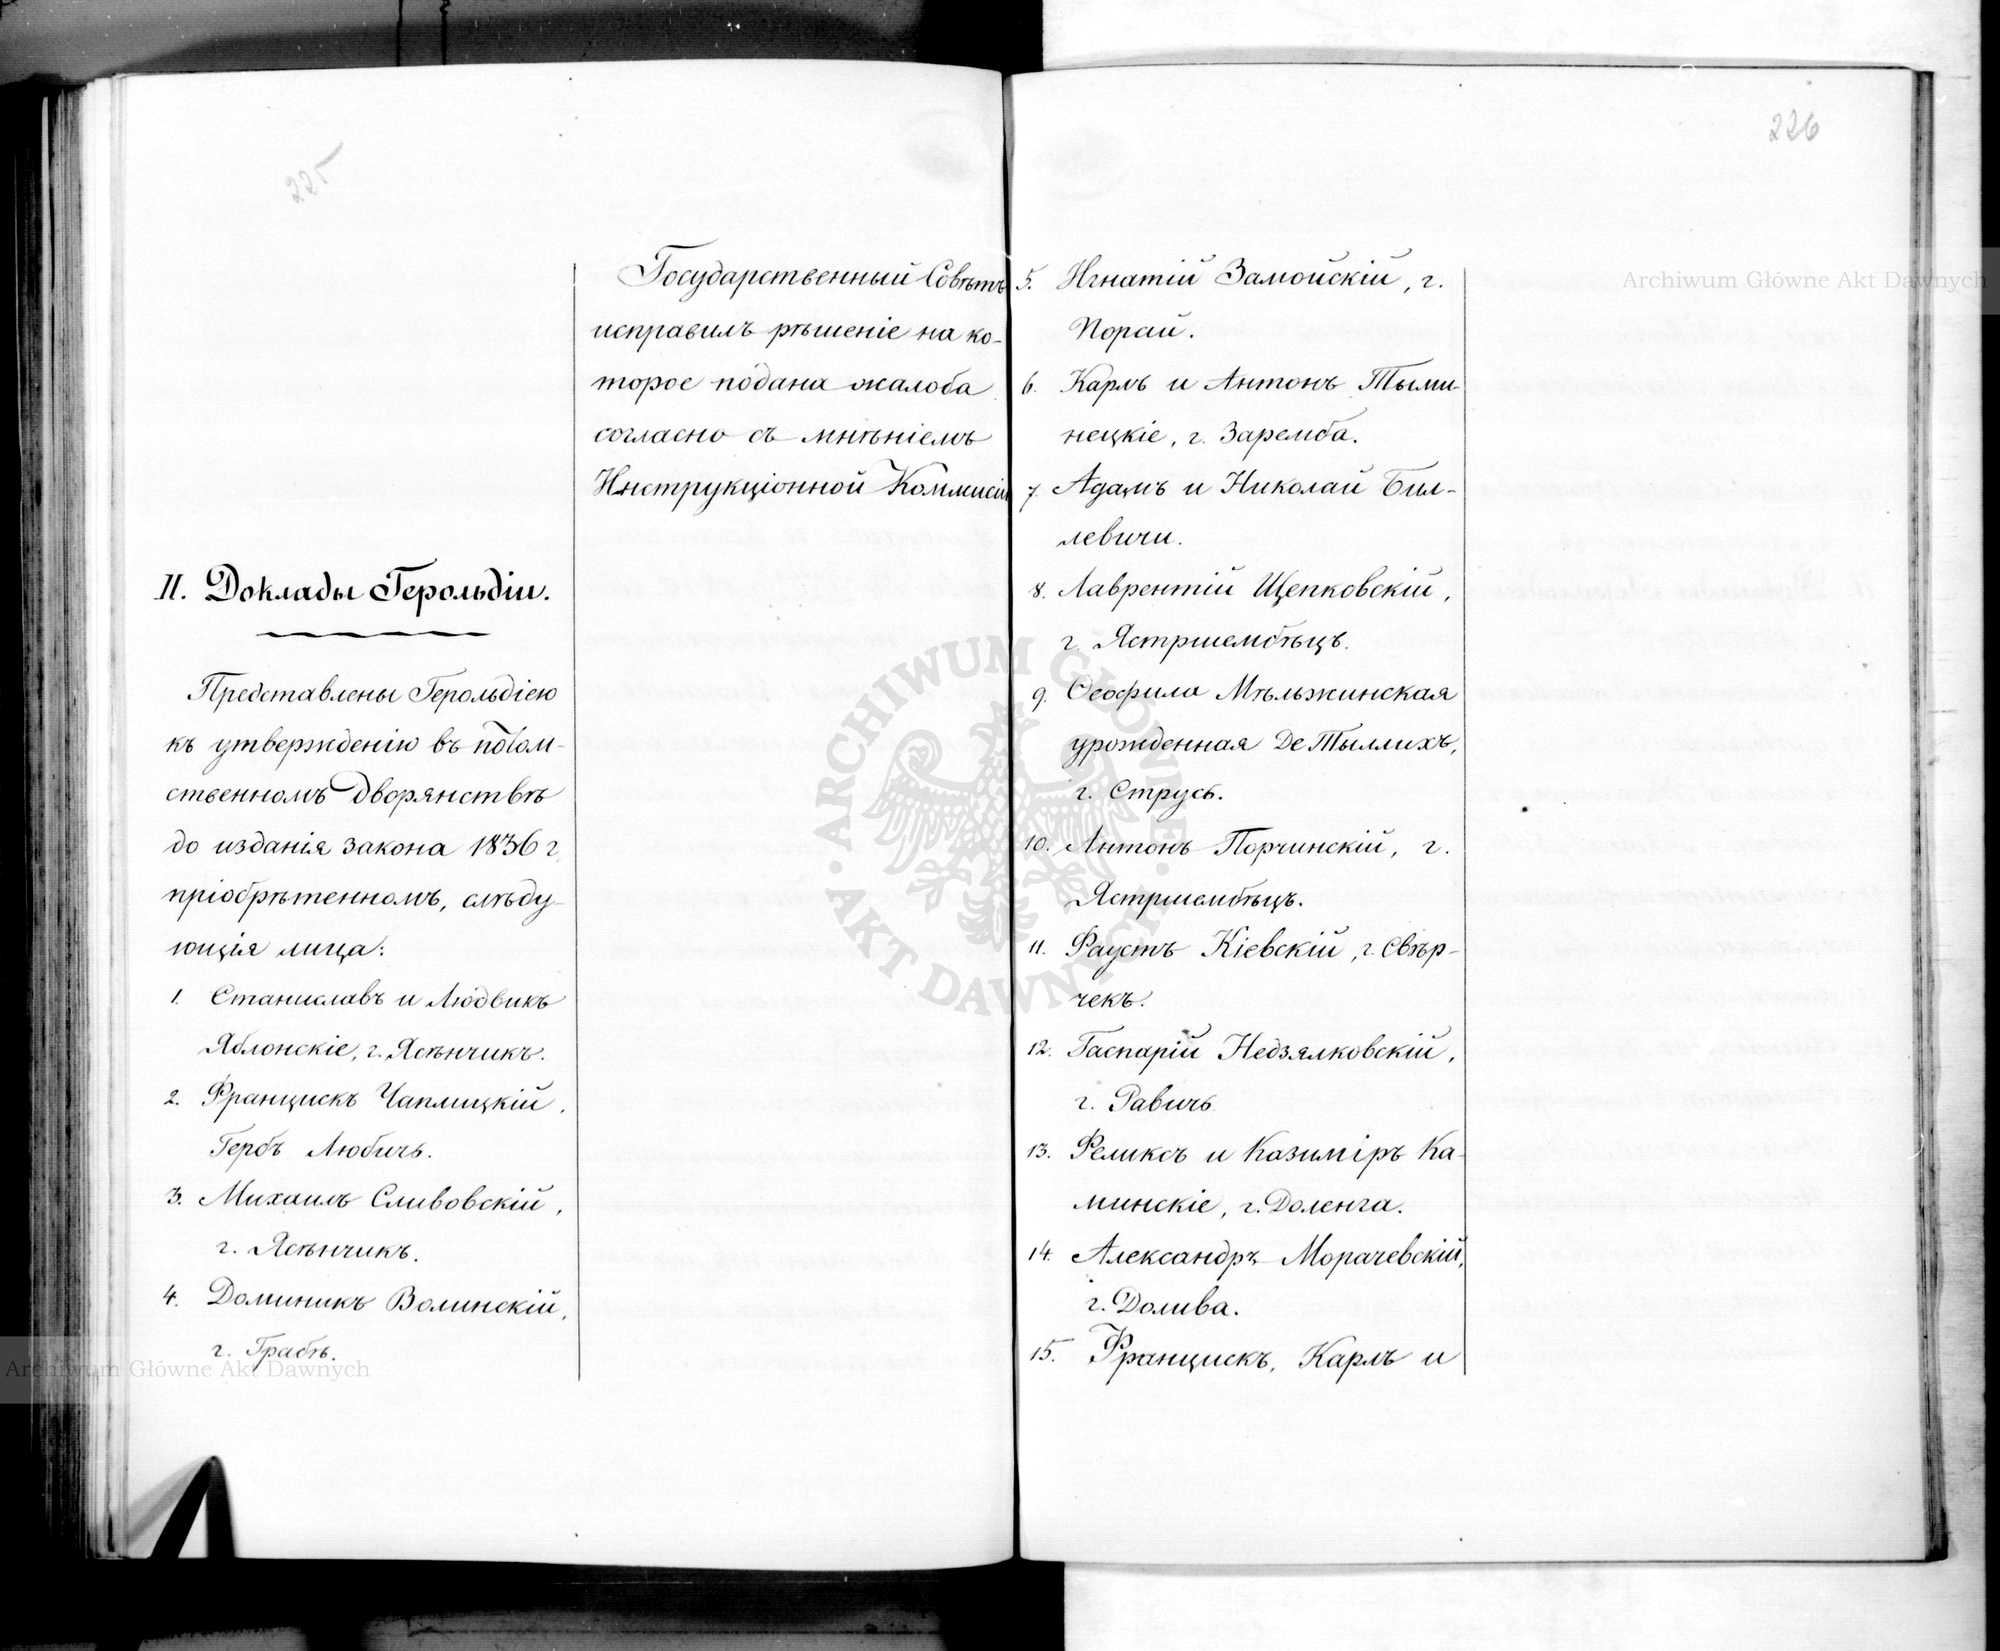 225
Государственный Совѣтъ
исправилъ рѣшеніе на ко-
торое подана жалоба
согласно съ мнѣніемъ
Инструкціонной Коммисіи
II. Доклады Герольдіи.
Представлены Герольдіею
къ утвержденію въ потом-
ственномъ дворянствѣ
до изданія закона 1836 г.
пріобрѣтенномъ, слѣду-
ющія лица:
1. Станиславъ и Людвикъ
Яблонскіе, г. Ясѣнчикъ.
2. Францискъ Чаплицкій,
Гербъ Любичъ.
3. Михаилъ Сливовскій,
г. Ясѣнчикъ.
4. Доминикъ Волинскій,
г. Грабѣ.
226
5. Игнатій Замойскій, г.
Порай.
6. Карлъ и Антонъ Тыми-
нецкіе, г. Заремба.
7. Адамъ и Николай Бил-
левичи.
8. Лаврентій Щепковскій,
г. Ястршембѣцъ.
9. Ѳеофила Мѣльжинская
урожденная Де Тыллихъ,
г. Струсь.
10. Антонъ Порчинскій, г.
Ястршембѣцъ.
11. Фаустъ Кіевскій, г. Свѣр-
чекъ.
12. Гаспарій Недзялковскій,
г. Равичъ
13. Феликсъ и Казиміръ Ка-
минскіе, г. Доленга.
14. Александръ Морачевскій,
г. Долива.
15. Францискъ, Карлъ и
Archiwum Główne Akt Dawnych
Archiwum Główne Akt Dawnych
ARCHIWUM GŁÓWNE · AKT DAWNYCH ·